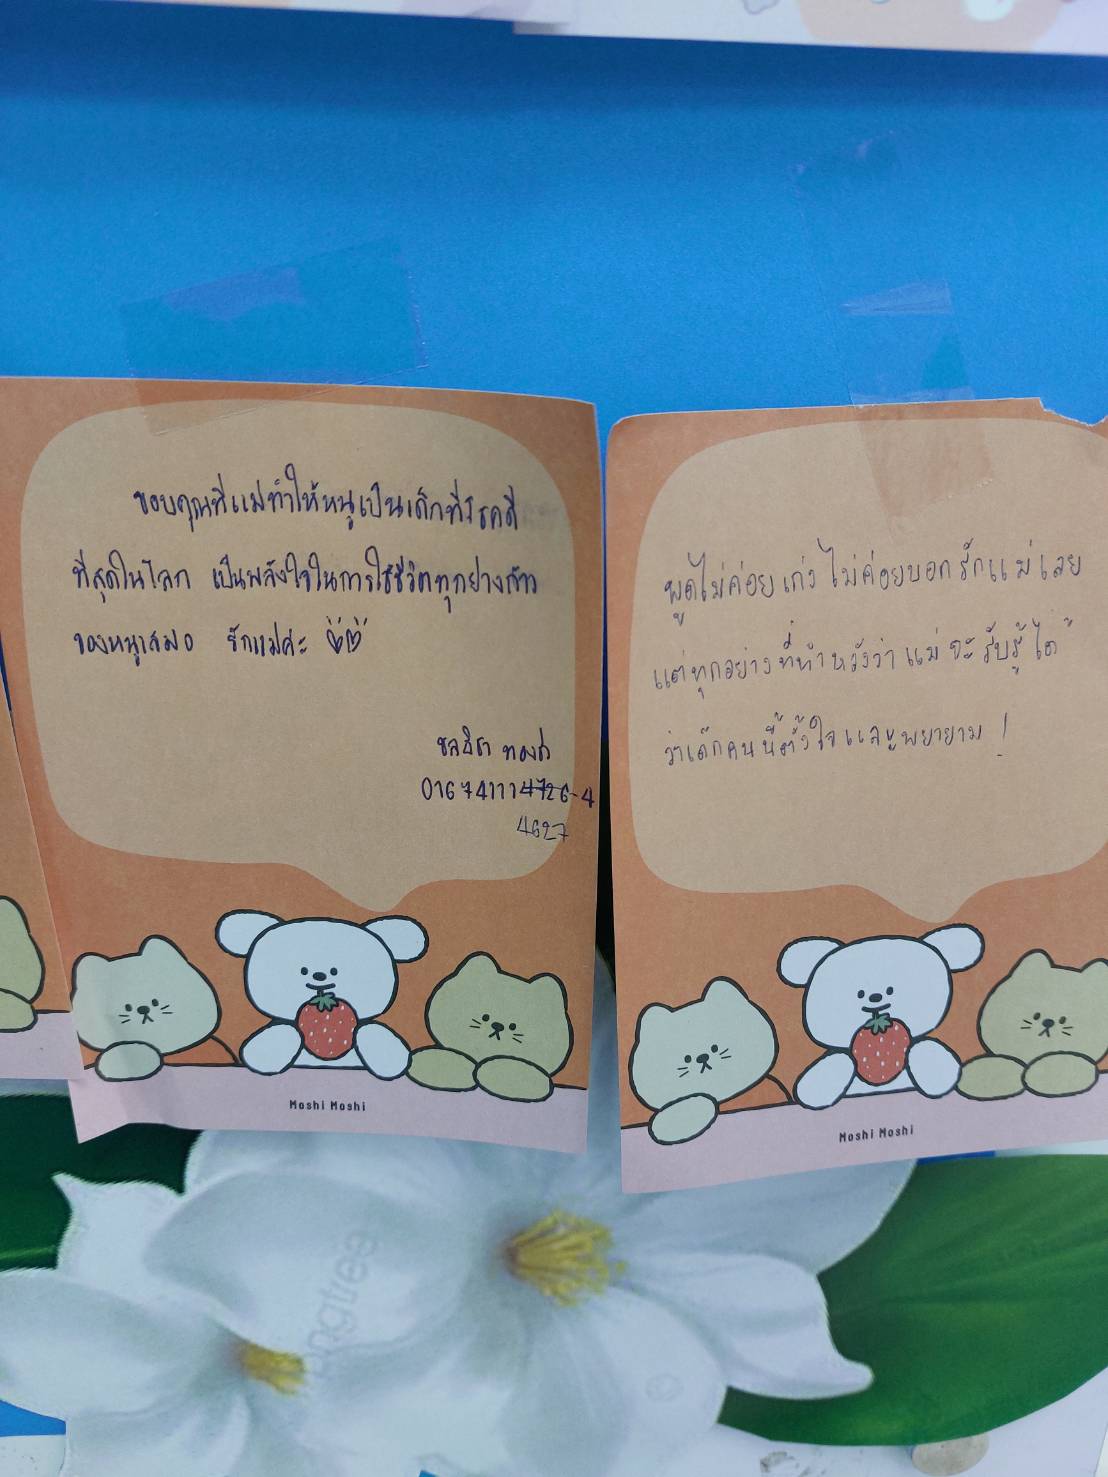 ขอบคุณที่แม่ทำให้หนูเป็นเด็กที่โชคดี
ที่สุดในโลก เป็นพลังใจในการใช้ชีวิตทุกย่างก้าว
ของหนูเสมอ รักแม่ค่ะ
ชลธิชา
016741114726-4
4627
Moshi Moshi
พูดไม่ค่อยเก่ง ไม่ค่อยบอกรักแม่เลย
แต่ทุกอย่างที่ทำหวังว่าแม่จะรับรู้ได้
ว่าเด็กคนนี้ตั้งใจและพยายาม!
Moshi Moshi